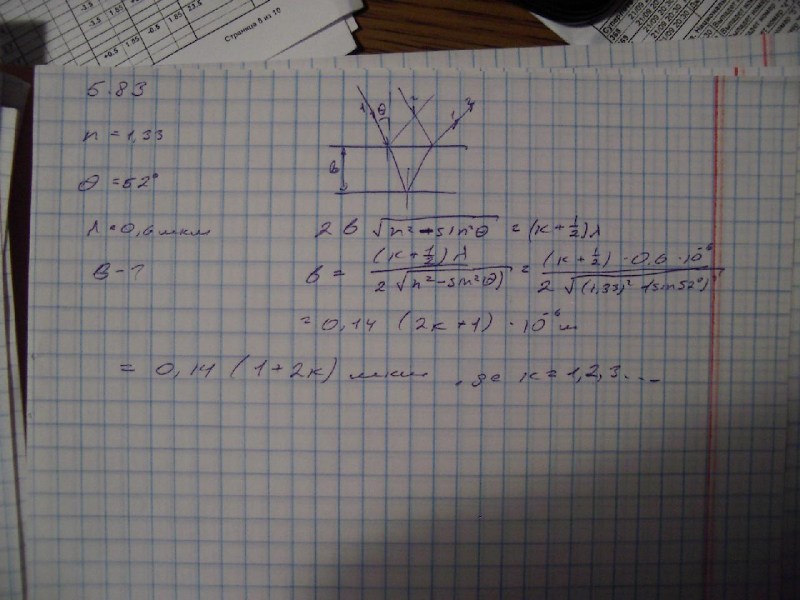 -3.5 1.65
+9.5 1.65 -6.5 1.65 23.5
Страница 8 из 10
5.83
n = 1,33
θ = 52°
λ = 0,6 мкм
b - ?
1 θ 2 1 2
b
2 b √(n² - sin²θ) = (k + 1/2) λ
b = (k + 1/2) λ / 2 √(n² - sin²(θ)) = (k + 1/2) · 0,6 · 10⁻⁶ / 2 √((1,33)² - (sin 52°)²)
= 0,14 (2k + 1) · 10⁻⁶ м
= 0,14 (1 + 2k) мкм , де k = 1,2,3...